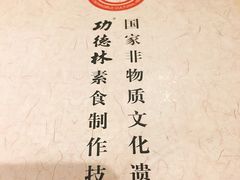 国家非物质文化遗
功德林素食制作技